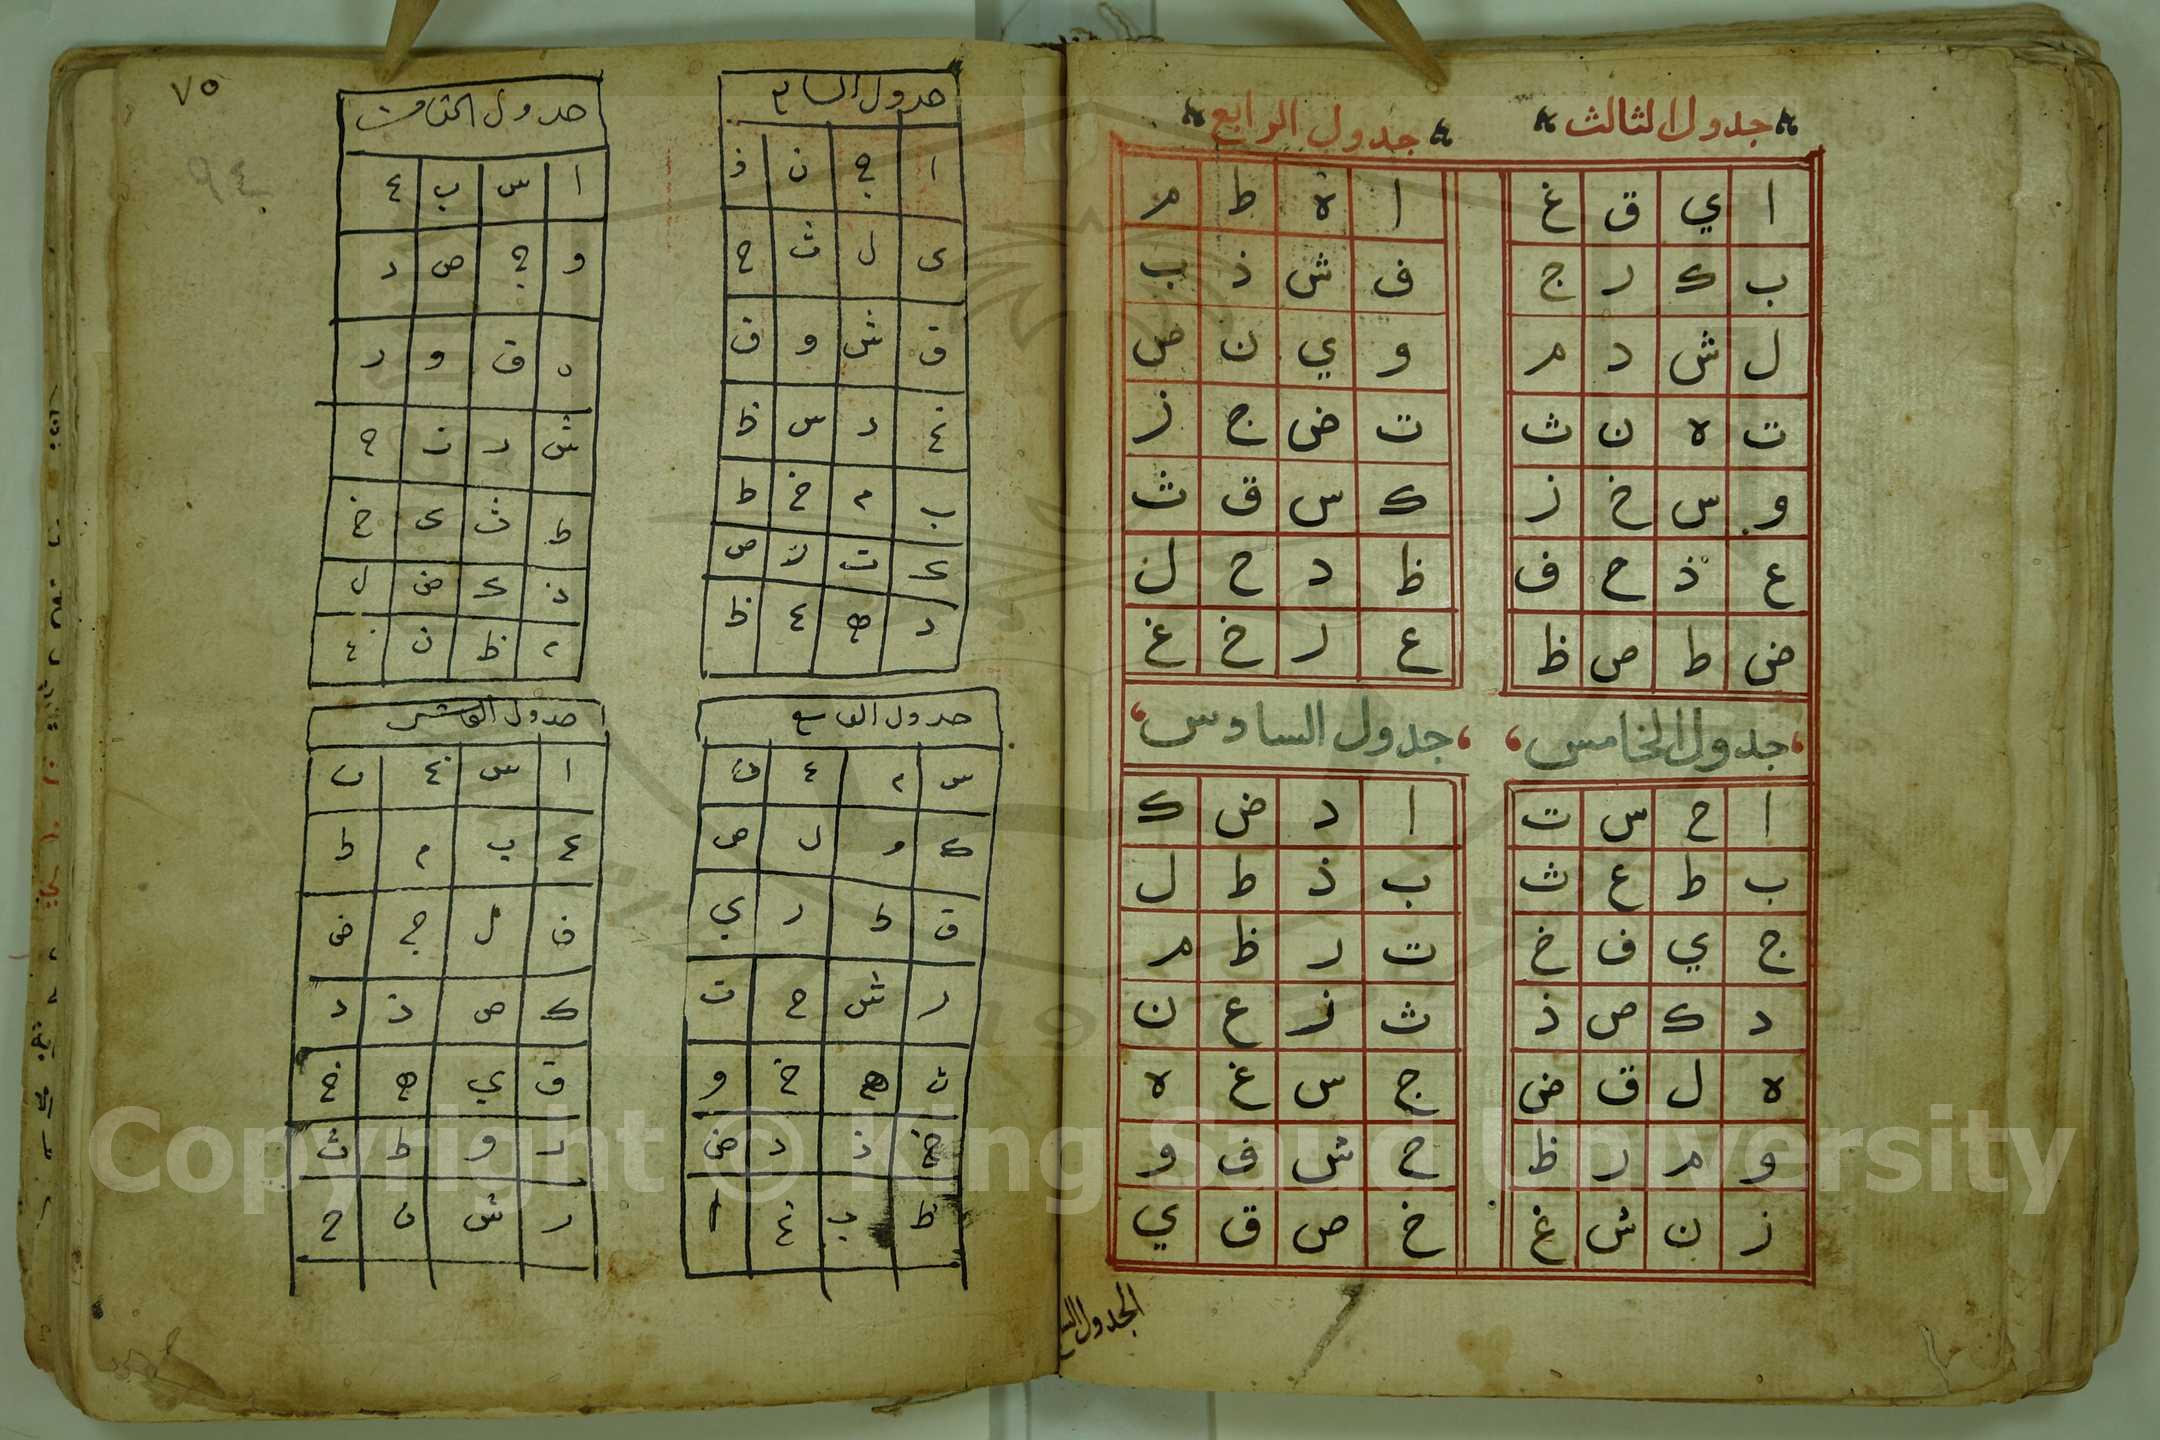 جدول الثالث
ا ي ق غ
ب ك ر ج
ل ش د م
ت ه ن ث
و س خ ز
ع ذ ح ف
ض ط ص ظ
جدول الرابع
ا ه ط م
ف ش ذ ب
و ي ن ص
ت ض ج ز
ك س ق ث
ظ د ح ل
ع ر خ غ
جدول الخامس
ا ح س ت
ب ط ع ث
ج ي ف خ
د ك ص ذ
ه ل ق ض
و م ر ظ
ز ن ش غ
جدول السادس
ا د ض ك
ب ذ ط ل
ت ر ظ م
ث ز ع ن
ج س غ ه
ح ش ف و
خ ص ق ي
٧٥
٩٤
جدول
ا ج ن ذ
ى ل ث ح
ق ش و ف
غ د س ظ
ب م خ ط
ص
ر ه ع
جدول الثامن
ا س ب ع
و ج ص د
ه ق و ر
ش د ت ح
ط ث ى خ
ذ ض ل
م ظ ن غ
جدول التاسع
س م ع ن
ك و ل ص
ق ط ر ي
ر ش ح ت
ث ه خ و
ذ د ض
ظ ب غ ا
جدول العاشر
ا س غ ن
ع ب م ط
ف ل ج ض
ك ص ذ د
ق ي ه خ
د و ط ث
ر ش ن ح
Copyright © King Saud University